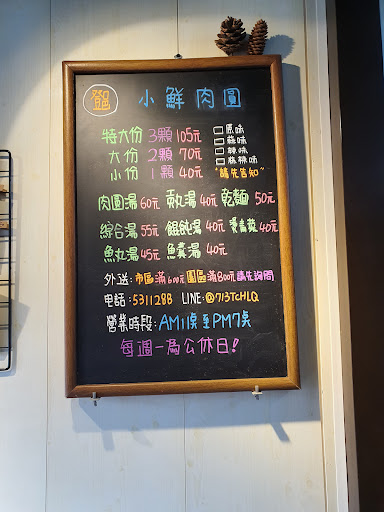 鄧 小鮮肉圓
特大份 3顆 105元 □原味
□蒜味
大份 2顆 70元 □辣味
□蒜辣味
小份 1顆 40元 *請先告知~
肉圓湯60元 貢丸湯40元 乾麵50元
綜合湯55元 餛飩湯40元 燙青菜40元
魚丸湯45元 魚羹湯40元
外送:市區滿600元 園區滿800元請先詢問
电話:5311288 LINE:@713TCHLQ
營業時段:AM11點至PM7點
每週一為公休日!